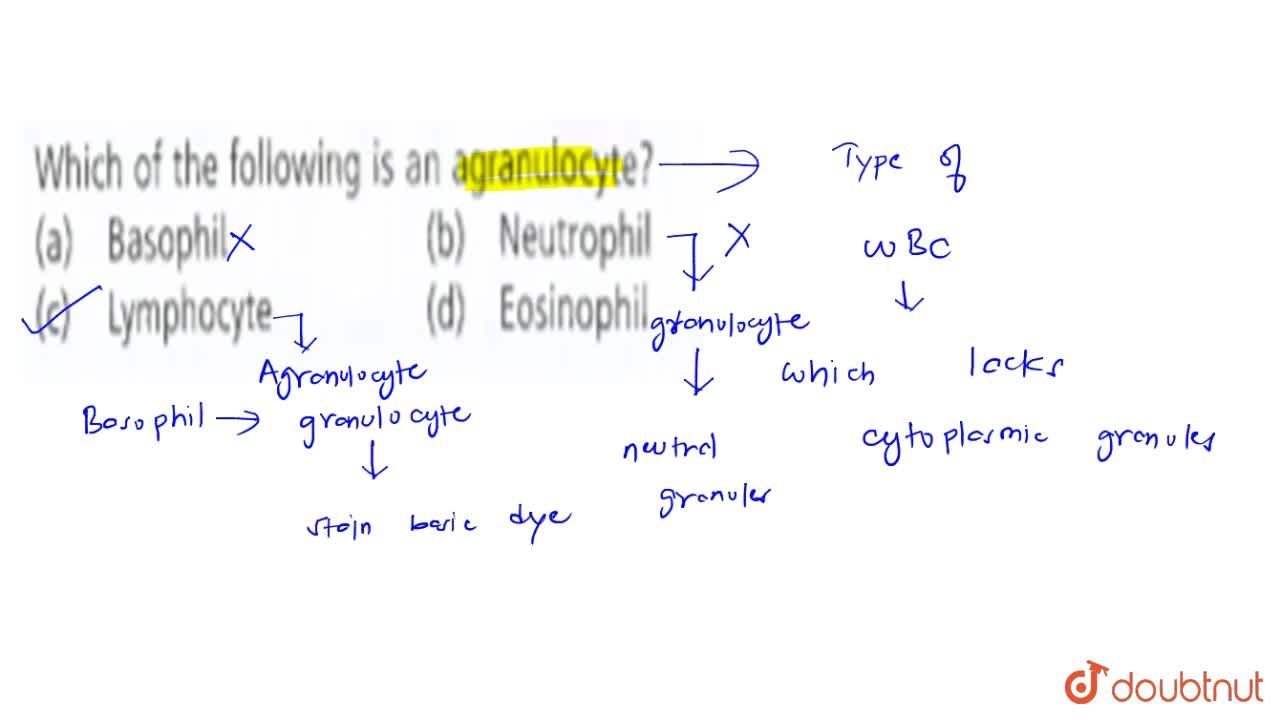 Which of the following is an agranulocyte? → Type of
(a) Basophil X (b) Neutrophil X WBC
(c) Lymphocyte (d) Eosinophil granulocyte
Agranulocyte which lacks
Basophil → granulocyte
neutral cytoplasmic granules
granules
stain basic dye
doubtnut